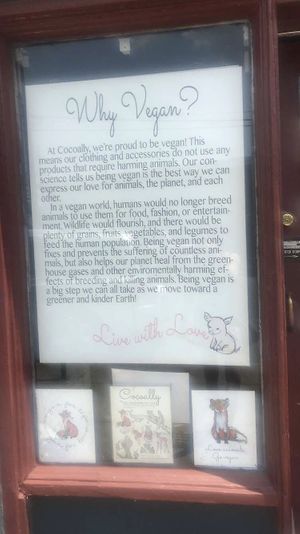 Why Vegan?
At Cocoally, we're proud to be vegan! This
means our clothing and accessories do not use any
products that require harming animals. Our con-
science tells us being vegan is the best way we can
express our love for animals, the planet, and each
other.
In a vegan world, humans would no longer breed
animals to use them for food, fashion, or entertain-
ment. Wildlife would flourish, and there would be
plenty of grains, fruits, vegetables, and legumes to
feed the human population. Being vegan not only
fixes and prevents the suffering of countless ani-
mals, but also helps our planet heal from the green-
house gases and other enviromentally harming ef-
fects of breeding and killing animals. Being vegan is
a big step we can all take as we move toward a
greener and kinder Earth!
Live with Love
Cocoally
Love animals
Go vegan